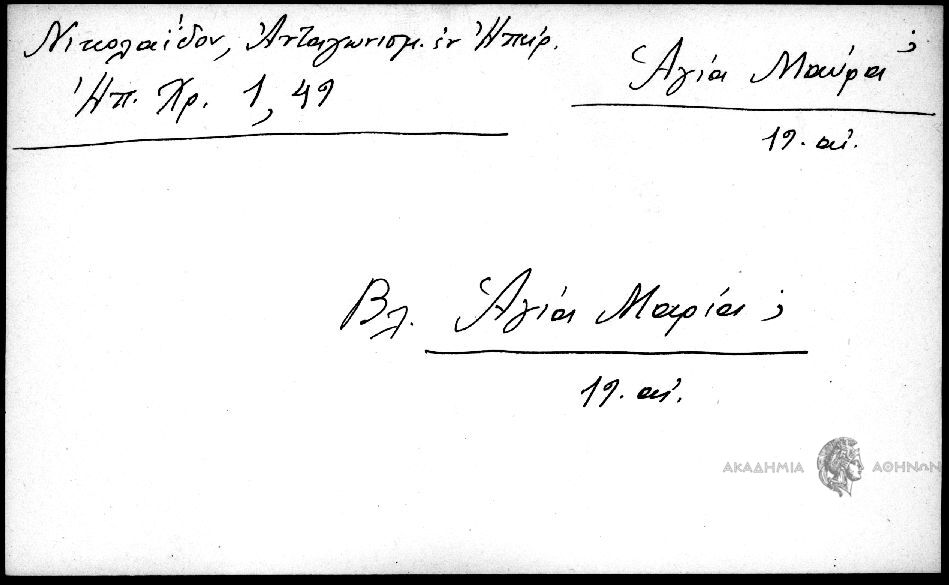 Νικολαΐδου, Ἀνταγωνισμ. ἐν Ἠπείρ.
Ἠπ. Χρ. 1, 49
Ἁγία Μαύρα ;
19. αἰ.
Βλ. Ἁγία Μαρία ;
19. αἰ.
ΑΚΑΔΗΜΙΑ ΑΘΗΝΩΝ